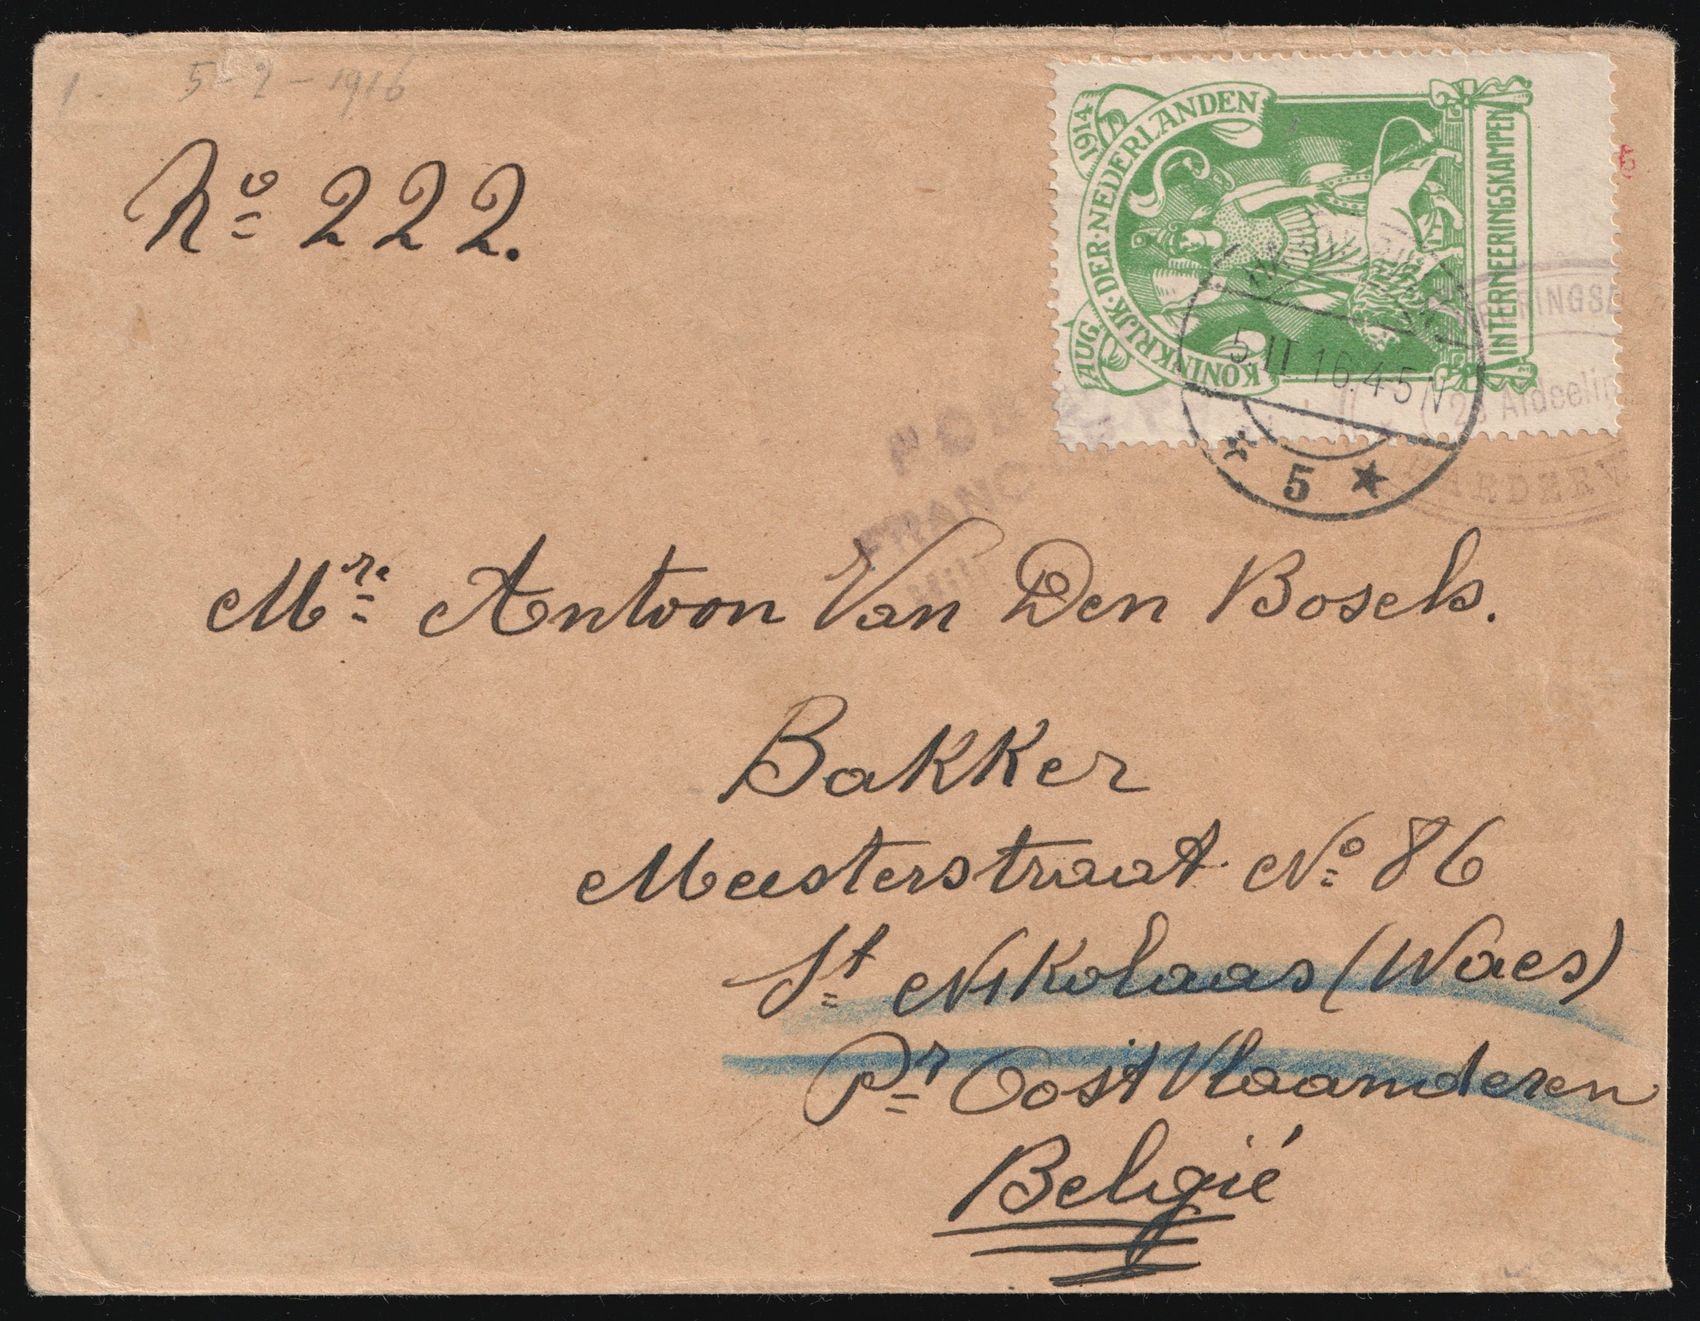 1. 5-2-1916
No 222.
AUG 1914
KONINKRIJK·DER·NEDERLANDEN
INTERNEERINGSKAMPEN
5.II 16.4-5N
5
2e Afdeelin
ARDERW
FRANC
6
Mr. Antoon Van Den Bosch.
Bakker
Meesterstraat No 86
St Nikolaas (Waes)
Pr Oost Vlaanderen
België